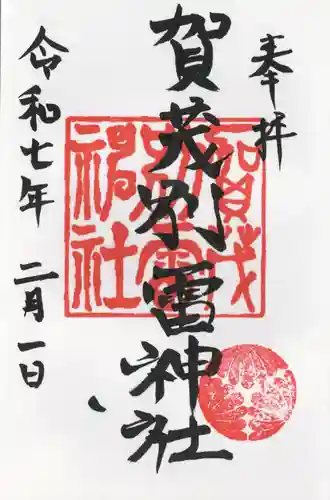 奉拝
賀茂別雷神社
令和七年 二月一日
賀茂
別雷
神社